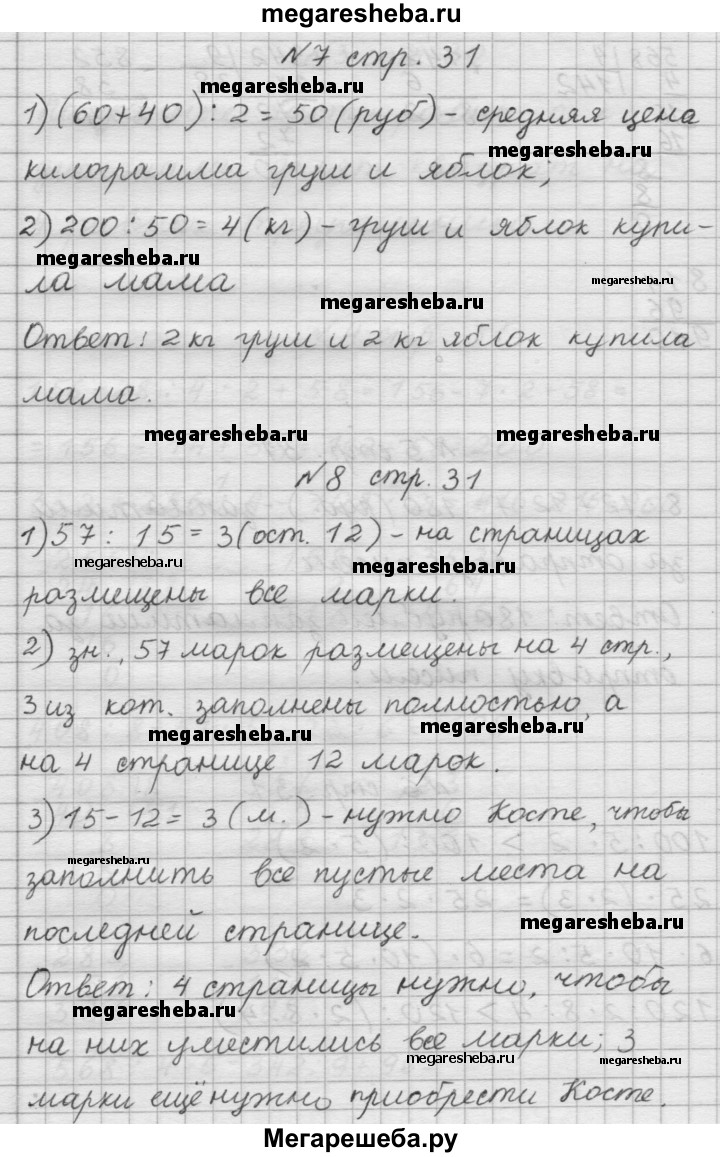 megaresheba.ru
N7 стр. 31
megaresheba.ru
1) (60+40) : 2 = 50 (руб) - средняя цена
megaresheba.ru
килограмма груш и яблок;
2) 200 : 50 = 4 (кг) - груш и яблок купи-
megaresheba.ru
ла мама
megaresheba.ru
megaresheba.ru
Ответ: 2 кг груш и 2 кг яблок купила
мама.
megaresheba.ru megaresheba.ru
N8 стр. 31
1) 57 : 15 = 3 (ост. 12) - на страницах
megaresheba.ru megaresheba.ru
размещены все марки.
2) зн., 57 марок размещены на 4 стр.,
3 из кот. заполнены полностью, а
megaresheba.ru megaresheba.ru
на 4 странице 12 марок.
3) 15 - 12 = 3 (м.) - нужно Косте, чтобы
megaresheba.ru megaresheba.ru
заполнить все пустые места на
megaresheba.ru
последней странице.
Ответ: 4 страницы нужно, чтобы
megaresheba.ru
на них уместились все марки; 3
megaresheba.ru megaresheba.ru
марки ещё нужно приобрести Косте.
Мегарешеба.ру